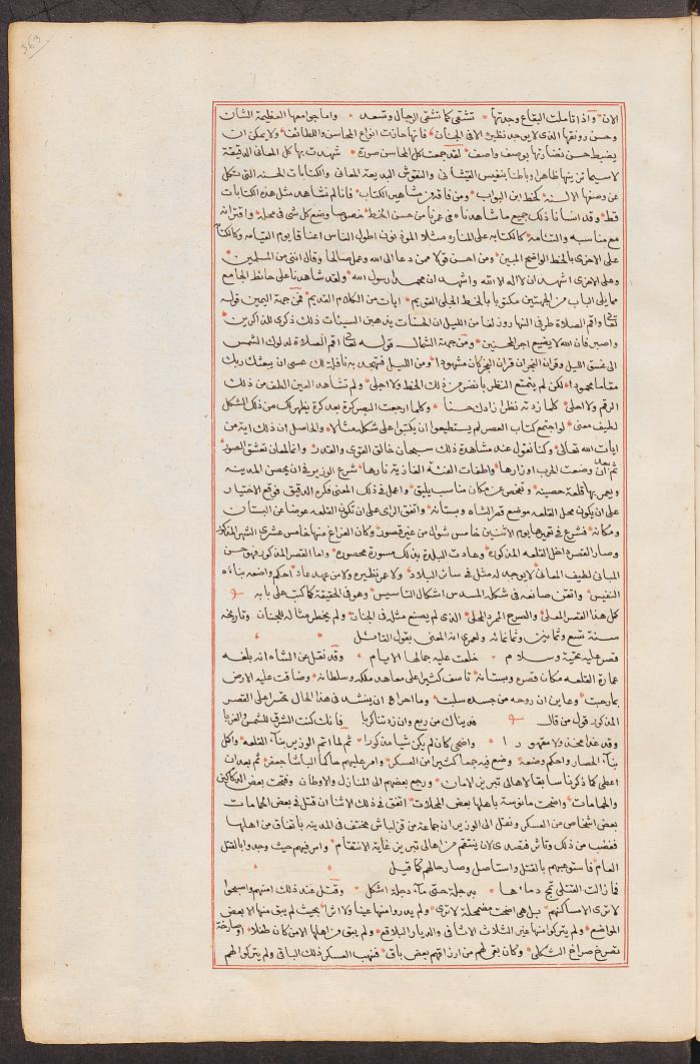 363
الان * واذا تاملت البقاع وجدتها * تشقى كما تشقى الرجال وتسعد * واما جوامعها العظيمة الشان
وحسن رونقها الذى لا يوجد نظيره الا فى الجنان * فانها حازت انواع المحاسن واللطائف * ولا يمكن ان
يضبط حسن نضارتها بوصف واصف * لقد جمعت كل المحاسن صورة * شهدت بها كل المعانى الدقيقة
لا سيما تزينها ظاهرا وباطنا بنفيس القيشانى والنقوش البديعة المعانى والكتابات الحسنه التى تكل
عن وصفها الالسنه * كخط ابن البواب * ومن فاقه من مشاهير الكتاب * فانا لم نشاهد مثل هذه الكتابات
قط * وقد انسانا ذلك جميع ما شاهدناه فى عمرنا من حسن الخط * خصوصا وضع كل شى فى محله * واقترانه
مع مناسبه والتئامه * كالكتابه على المناره مثلا الموذنون اطول الناس اعناقا يوم القيامه وكالكتابة
على الاخرى بالخط الواضح المبين * ومن احسن قولا ممن دعا الى الله وعمل صالحا وقال اننى من المسلمين *
وعلى الاخرى اشهد ان لا اله الا الله واشهد ان محمدا رسول الله * ولقد شاهدنا على حائط الجامع
مما يلى الباب من الجهتين مكتوبا بالخط الجلى القويم * ايات من الكلام القديم * فمن جهة اليمين قوله
تعالى واقم الصلاة طرفى النهار وزلفا من الليل ان الحسنات يذهبن السيئات ذلك ذكرى للذاكرين *
واصبر فان الله لا يضيع اجر المحسنين * ومن جهة الشمال قوله تعالى اقم الصلاة لدلوك الشمس
الى غسق الليل وقران الفجر ان قران الفجر كان مشهودا * ومن الليل فتهجد به نافلة لك عسى ان يبعثك ربك
مقاما محمودا * لكن لم يتمتع النظر بانضر من ذلك الخط ولا اجلى * ولم تشاهد العين الطف من ذلك
الرقم ولا اعلى * كلما زدته نظرا زادك حسنا * وكلما ارجعت البصر كرة بعد كرة يظهر لك من ذلك الشكل
لطيف معنى * لو اجتمع كتاب العصر لم يستطيعوا ان يكتبوا على شكل مثالا * والحاصل ان ذلك اية من
ايات الله تعالى * وكنا نقول عند مشاهدة ذلك سبحان خالق القوى والقدر * وانما لمعان تعشق الصور *
ثم بعد ان وضعت الحرب اوزارها * واطفات الفئه الغازية نارها * شرع الوزير فى ان يحصن المدينه
ويعمر بها قلعة حصينه * وتفحص عن مكان مناسب يليق * واعمل فى ذلك المعنى فكره الدقيق فوقع الاختيار
على ان يكون محل القلعه موضع قصر الشاه وبستانه * واتفق الراى على ان تكون القلعه عوضا عن البستان
ومكانه * فشرع فى تعميرها يوم الاثنين خامس شوال من غير قصور * وكان الفراغ منها خامس عشرى الشهر المذكور
وصار القصر داخل القلعه المذكوره * وعادت البلدة بذلك مسورة محصوره * واما القصر المذكور فهو حسن
المبانى لطيف المعانى * لا يوجد له مثل فى سائر البلاد * ولا عمر نظيره ولا من عهد عاد * احكم واضعه بناءه
النفيس * واتقن صانعه فى شكله المسدس اشكال التاسيس * وهو فى الحقيقة كما كتب على بابه *
كل هذا القصر المعلى * والصرح الممرد المحلى * الذى لم يصنع مثله فى الجنان * ولم يخطر مثاله للجنان * وتاريخه
سنة تسع وثمانين وثمانمائه * ولعمرى انه المعنى بقول القائل
قصر عليه تحية وسلام * خلعت عليه جمالها الايام * وقد نقل عن الشاه انه بلغه
عمارة القلعه مكان قصره وبستانه * تاسف كثيرا على معاهد ملكه وسلطانه * وضاقت عليه الارض
بما رحبت * وعاين ان روحه من جسده سلبت * وما احراه ان ينشد فى هذا الحال تحسرا على القصر
المذكور قول من قال * فديناك من ربع وان زدتنا كربا * فانك كنت الشرق للشمس والغربا
وقد غدا مجندلا ومقهورا * واضحى كان لم يكن شيا مذكورا * ثم لما اتم الوزير بناء القلعه * واكمل
بناء الحصار واحكم وضعه * وضع فيه جمعا كثيرا من العسكر * وامر عليهم حاكما الباشا جعفر * ثم بعد ان
اعطى كما ذكرنا سابقا لاهالى تبريز الامان * ورجع بعضهم الى المنازل والاوطان * وفتحت بعض الدكاكين
والحمامات * واضحت مانوسة باهلها بعض المحلات * اتفق فى ذلك الاثنا ان قتل فى بعض الحمامات
بعض اشخاص من العسكر * ونقل الى الوزير ان جماعة من قزلباش مختف فى المدينه باتفاق من اهلها
فغضب من ذلك وتاثر * فقصد فى الان ينتقم من اهالى تبريز غاية الانتقام * وامر فيهم حيث وجدوا بالقتل
العام * فاستوعبهم بالقتل واستاصل * وصار حالهم كما قيل
فما زالت القتلى تمج دماءها * بدجلة حتى ماء دجلة اشكل * وقتل عند ذلك امنهم واصبحوا
لا ترى الا مساكنهم * بل هى اضحت مضمحلة لا ترى * ولم يدروا منها عينا ولا اثرا * بحيث لم يبق منها الا بعض
المواضع * ولم يتركوا منها غير الثلاث الاثافى والديار البلاقع * ولم يبق من اهلها الا من كان طفلا * او صارخة
تصرخ صراخ الثكلى * وكان بقى لهم من ارزاقهم بعض باق * فنهب العسكر ذلك الباقى ولم يتركوا لهم